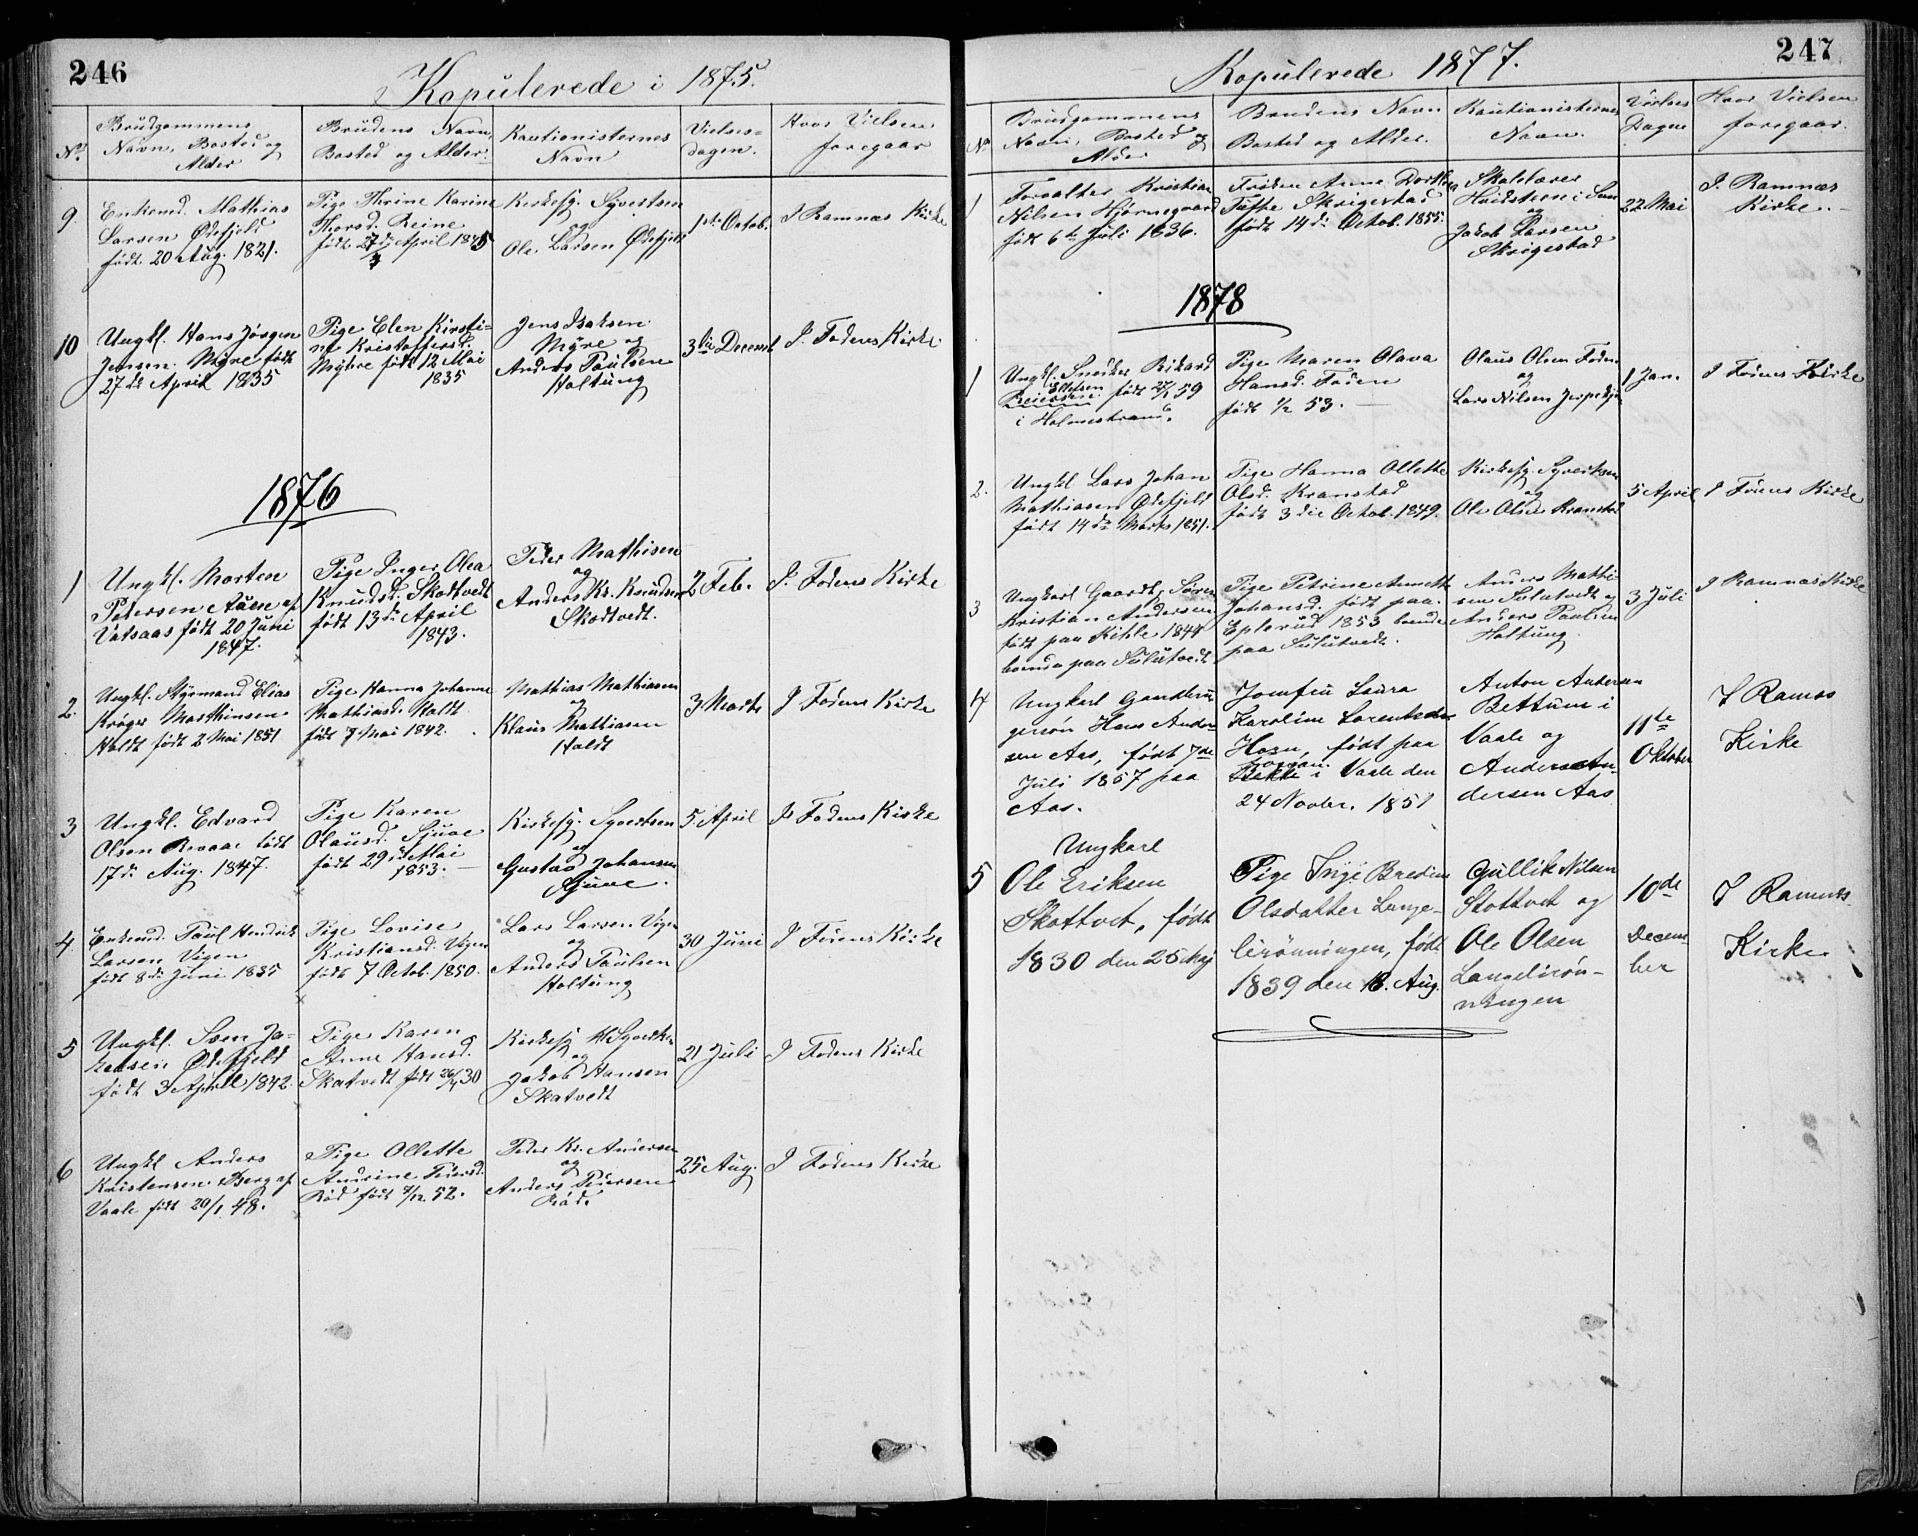 246
Kopulerede i 1875.
No.
Brudgommens
Navn, Bosted og
Alder
Brudens Navn,
Bosted og Alder.
Kautionisternes
Navn
Vielses-
dagen.
Hvor Vielsen
foregaar
9.
Enkemd. Mathias
Larsen Ødefjeld
født 20 Aug. 1821.
Pige Thrine Karine
Thorsd. Reine
født 27de April 1845
Kirkesg. Syvertsen
og
Ole Larsen Ødefjeld
1ste Octob.
I Ramnæs Kirke
10
Ungkl. Hans Jørgen
Jensen Myre født
27de April 1835
Pige Elen Kirsti-
ne Kristoffersd.
Myhre født 12 Mai
1835
Jens Isaksen
Myre og
Anders Paulsen
Holtung
3die Decemb
I Fodens Kirke
1876
1
Ungkl. Morten
Pedersen Auen af
Vatsaas født 20 Juni
1847.
Pige Inger Olea
Knudsd. Skodtvedt
født 13de April
1843.
Peder Mathisen
og
Anders Kr. Knudsen
Skodtvedt.
2 Feb.
I Fodens Kirke
2.
Ungkl. Styrmand Elias
Krøger Matthisen
Holdt født 2 Mai 1851
Pige Hanna Johanne
Mathiasd. Holdt
født 7 Mai 1842.
Mathias Mathiasen
og
Klaus Mathiasen
Holdt
3 Marts
I Fodens Kirke
3
Ungkl. Edvard
Olsen Revaae født
17de Aug. 1847.
Pige Karen
Olausd. Sjuve
født 29de Mai
1853.
Kirkesg. Syvertsen
og
Gustav Johansen
Sjuve.
5 April
I Fodens Kirke
4.
Enkemd. Paul Hendrik
Larsen Vigen
født 8de Juni 1835
Pige Lovise
Kristiansd. Vigen
født 7 Octob. 1850.
Lars Larsen Vigen
og
Anders Paulsen
Holtung
30 Juni
I Fodens Kirke
5
Ungkl. Sven Ja-
kobsen Ødefjeld
født 3 April 1842.
Pige Karen
Anne Hansd.
Skatvedt født 26/4 30
Kirkesg. Syvertsen
og
Jakob Hansen
Skatvedt
21 Juli
I Fodens Kirke
6
Ungkl Anders
Kristensen Berg af
Vaale født 20/1 48.
Pige Ollette
Andrine Pedersd.
Rød født 4/12 52.
Peder Kr. Andersen
og
Anders Pedersen
Rød
25 Aug.
I Fodens Kirke
247
Kopulerede 1877.
No
Brudgommens
Navn, Bosted og
Alder
Brudens Navn
Bosted og Alder.
Kautionisternes
Navn.
Vielses
Dagen
Hvor Vielsen
foregaar.
1
Forvalter Kristian
Nilsen Hjørnegaard
født 6te Juli 1836.
Frøken Anne Dorthea
Tuffe Skrigestad
født 14de Octob. 1855
Skolelærer
Hvidsteen i Sem
og
Jakob Larsen
Skrigestad
22 Mai
I Ramnæs
Kirke.
1878
1
Ungkl. Snedker Rikard
Ellefsen
Reiersen født 27/1 59
i Holmestrand.
Pige Maren Olava
Hansd. Foden
født 1/2 53.
Olaus Olsen Foden
og
Lars Nilsen
1 Jan.
I Fodens Kirke
2.
Ungkl Lars Johan
Mathiasen Ødefjeld
født 14de Marts 1851.
Pige Hanna Ollette
Olsd. Kranstad
født 3die Octob. 1849.
Kirkesg. Syvertsen
og
Ole Olsen Kranstad
5 April
I Fodens Kirke
3
Ungkarl Gaardb. Søren
Kristian Andersen
født paa Kihle 1844
boende paa Sulutvedt
Pige Petrine Annette
Johansd. født paa
Eplerud 1853 boende
paa Sulutvedt.
Anders Mathi-
sen Sulutvedt og
Anders Paulsen
Holtung.
3 Juli
I Ramnæs Kirke
4
Ungkarl
Hans Ander-
sen Aas, født 7de
Juli 1857 paa
Aas.
Jomfru Laura
Karoline Lorentsdtr
født paa
i Vaale den
24 Novbr. 1851
Anton Andersen
Bettum i
Vaale og
Anders An-
dersen Aas
11te
Oktober
I Ramnes
Kirke
5
Ungkarl
Ole Eriksen
Skottvet, født
1830 den 25 Maj
Pige Inge Bredine
Olsdatter Lange-
lirønningen, født
1839 den 18. Aug.
Gullik Nilsen
Stottvet og
Ole Olsen
Langelirøn-
ningen
10de
Decem-
ber
I Ramnes
Kirke